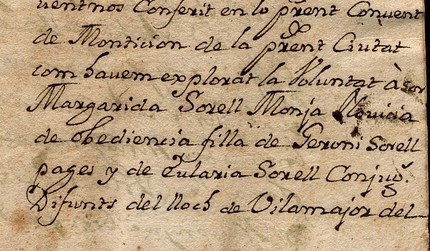 nos Conferit en lo pr̃ent Convent
de Monticion de la pr̃ent Ciutat
com havem explorat la Voluntat à sor
Margarida Sorell Monja Novicia
de obediencia filla de Geroni Sorell
pages y de Eularia Sorell Conjug̃.
Difunts del lloch de Vilamajor del